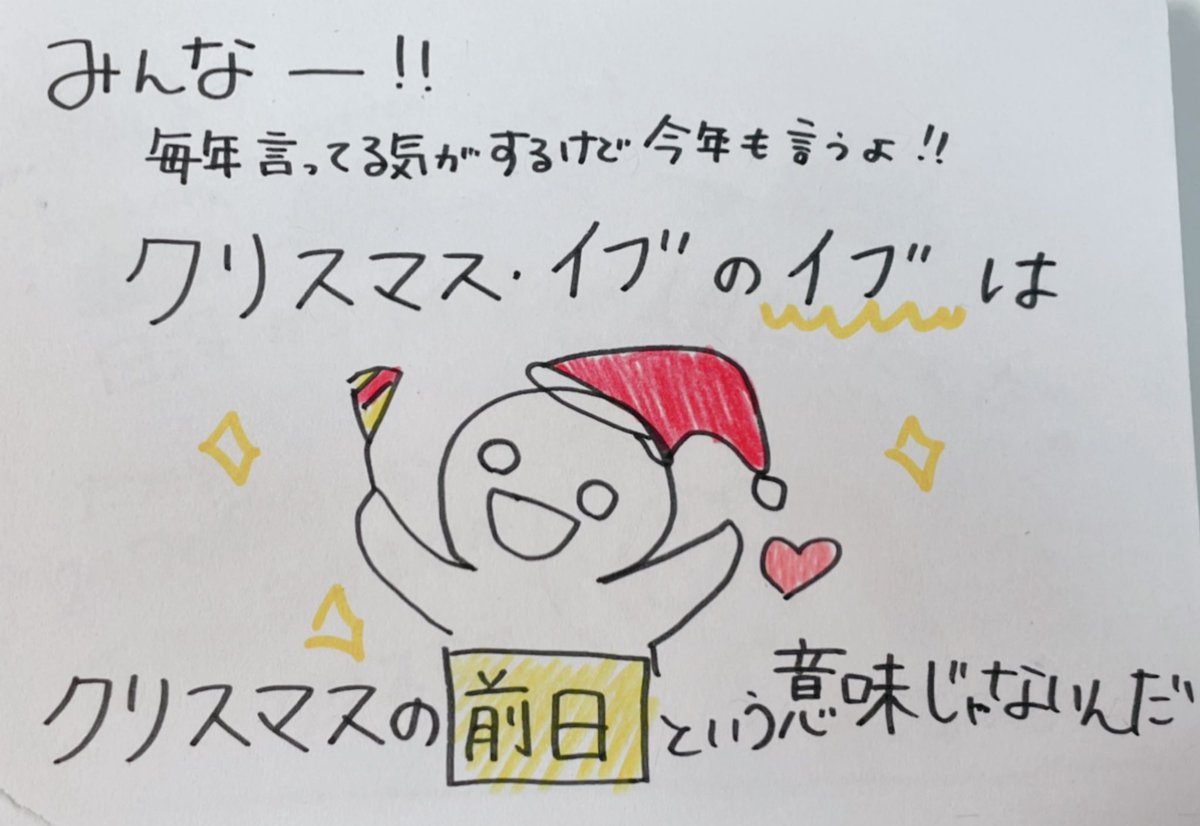 みんなー!!
毎年言ってる気がするけど今年も言うよ!!
クリスマス・イブのイブは
クリスマスの前日という意味じゃないんだ